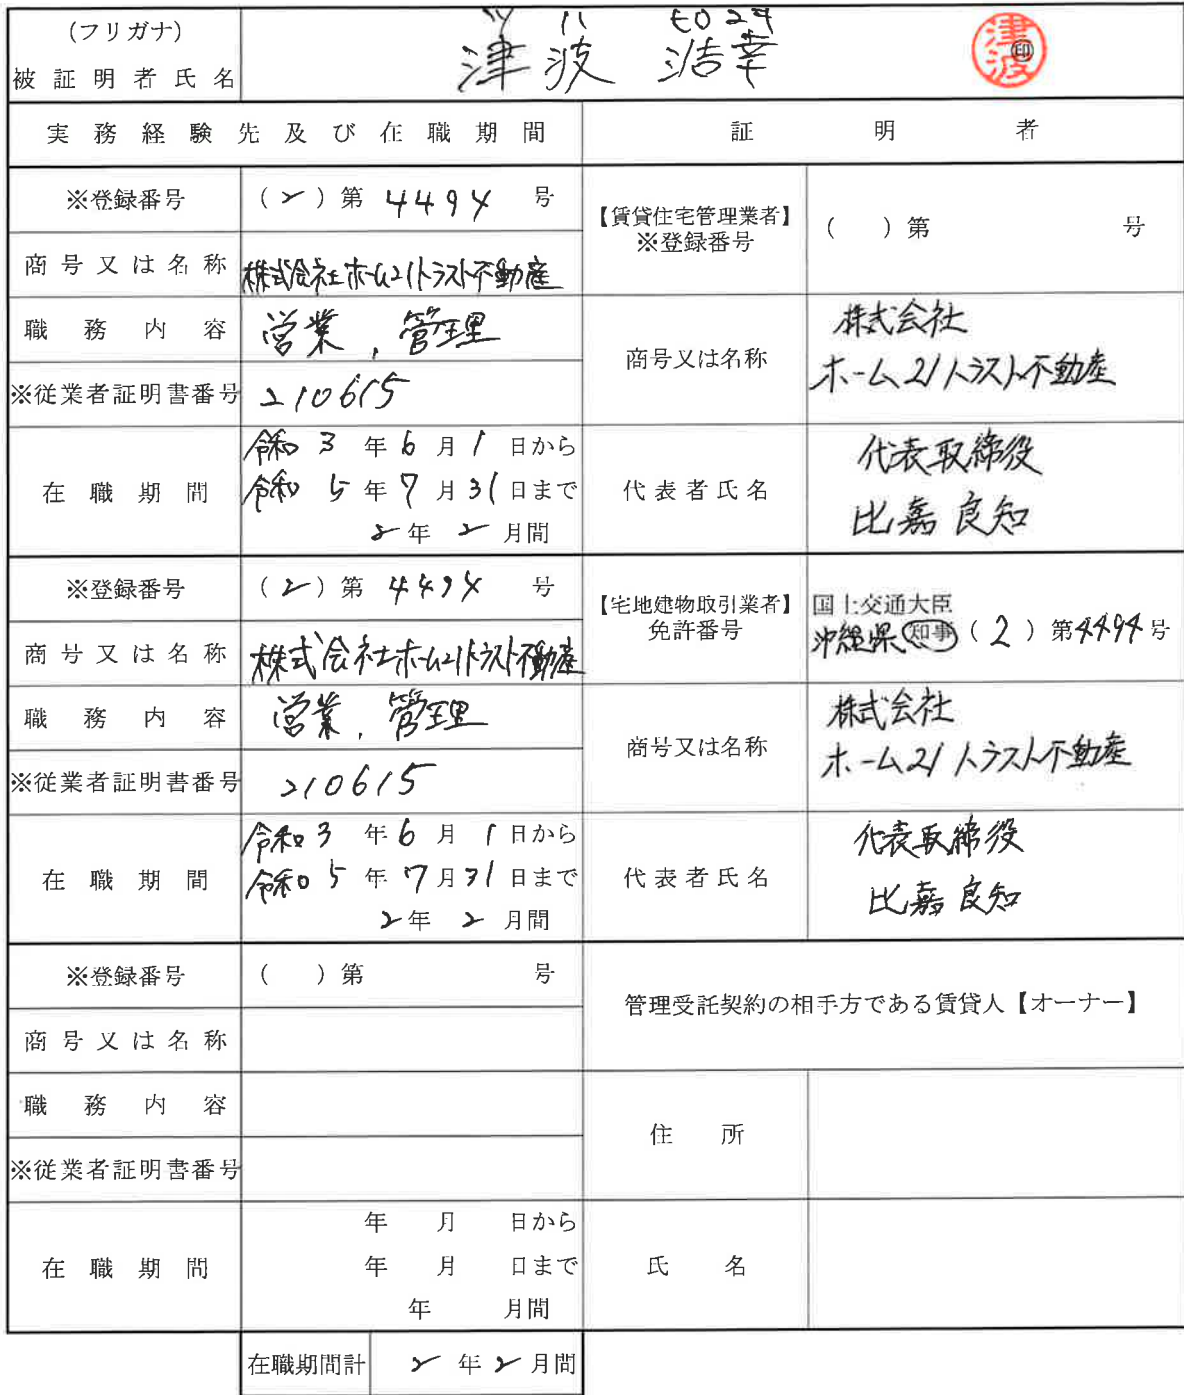 (フリガナ)
ツハ ヒロユキ
被証明者氏名 津波 浩幸
津波 印
実務経験先及び在職期間 証明者
※登録番号 (2)第 4494 号
【賃貸住宅管理業者】
※登録番号 ( )第 号
商号又は名称 株式会社ホーム21トラスト不動産
職務内容 営業、管理
商号又は名称 株式会社
ホーム21トラスト不動産
※従業者証明書番号 210615
在職期間 令和3年6月1日から
令和5年7月31日まで
2年2月間
代表者氏名 代表取締役
比嘉良知
※登録番号 (2)第 4494 号
【宅地建物取引業者】
免許番号 国土交通大臣
沖縄県知事(2)第4494号
商号又は名称 株式会社ホーム21トラスト不動産
職務内容 営業、管理
商号又は名称 株式会社
ホーム21トラスト不動産
※従業者証明書番号 210615
在職期間 令和3年6月1日から
令和5年7月31日まで
2年2月間
代表者氏名 代表取締役
比嘉良知
※登録番号 ( )第 号
管理受託契約の相手方である賃貸人【オーナー】
商号又は名称
職務内容
住所
※従業者証明書番号
在職期間 年 月 日から
年 月 日まで
年 月間
氏名
在職期間計 2年2月間